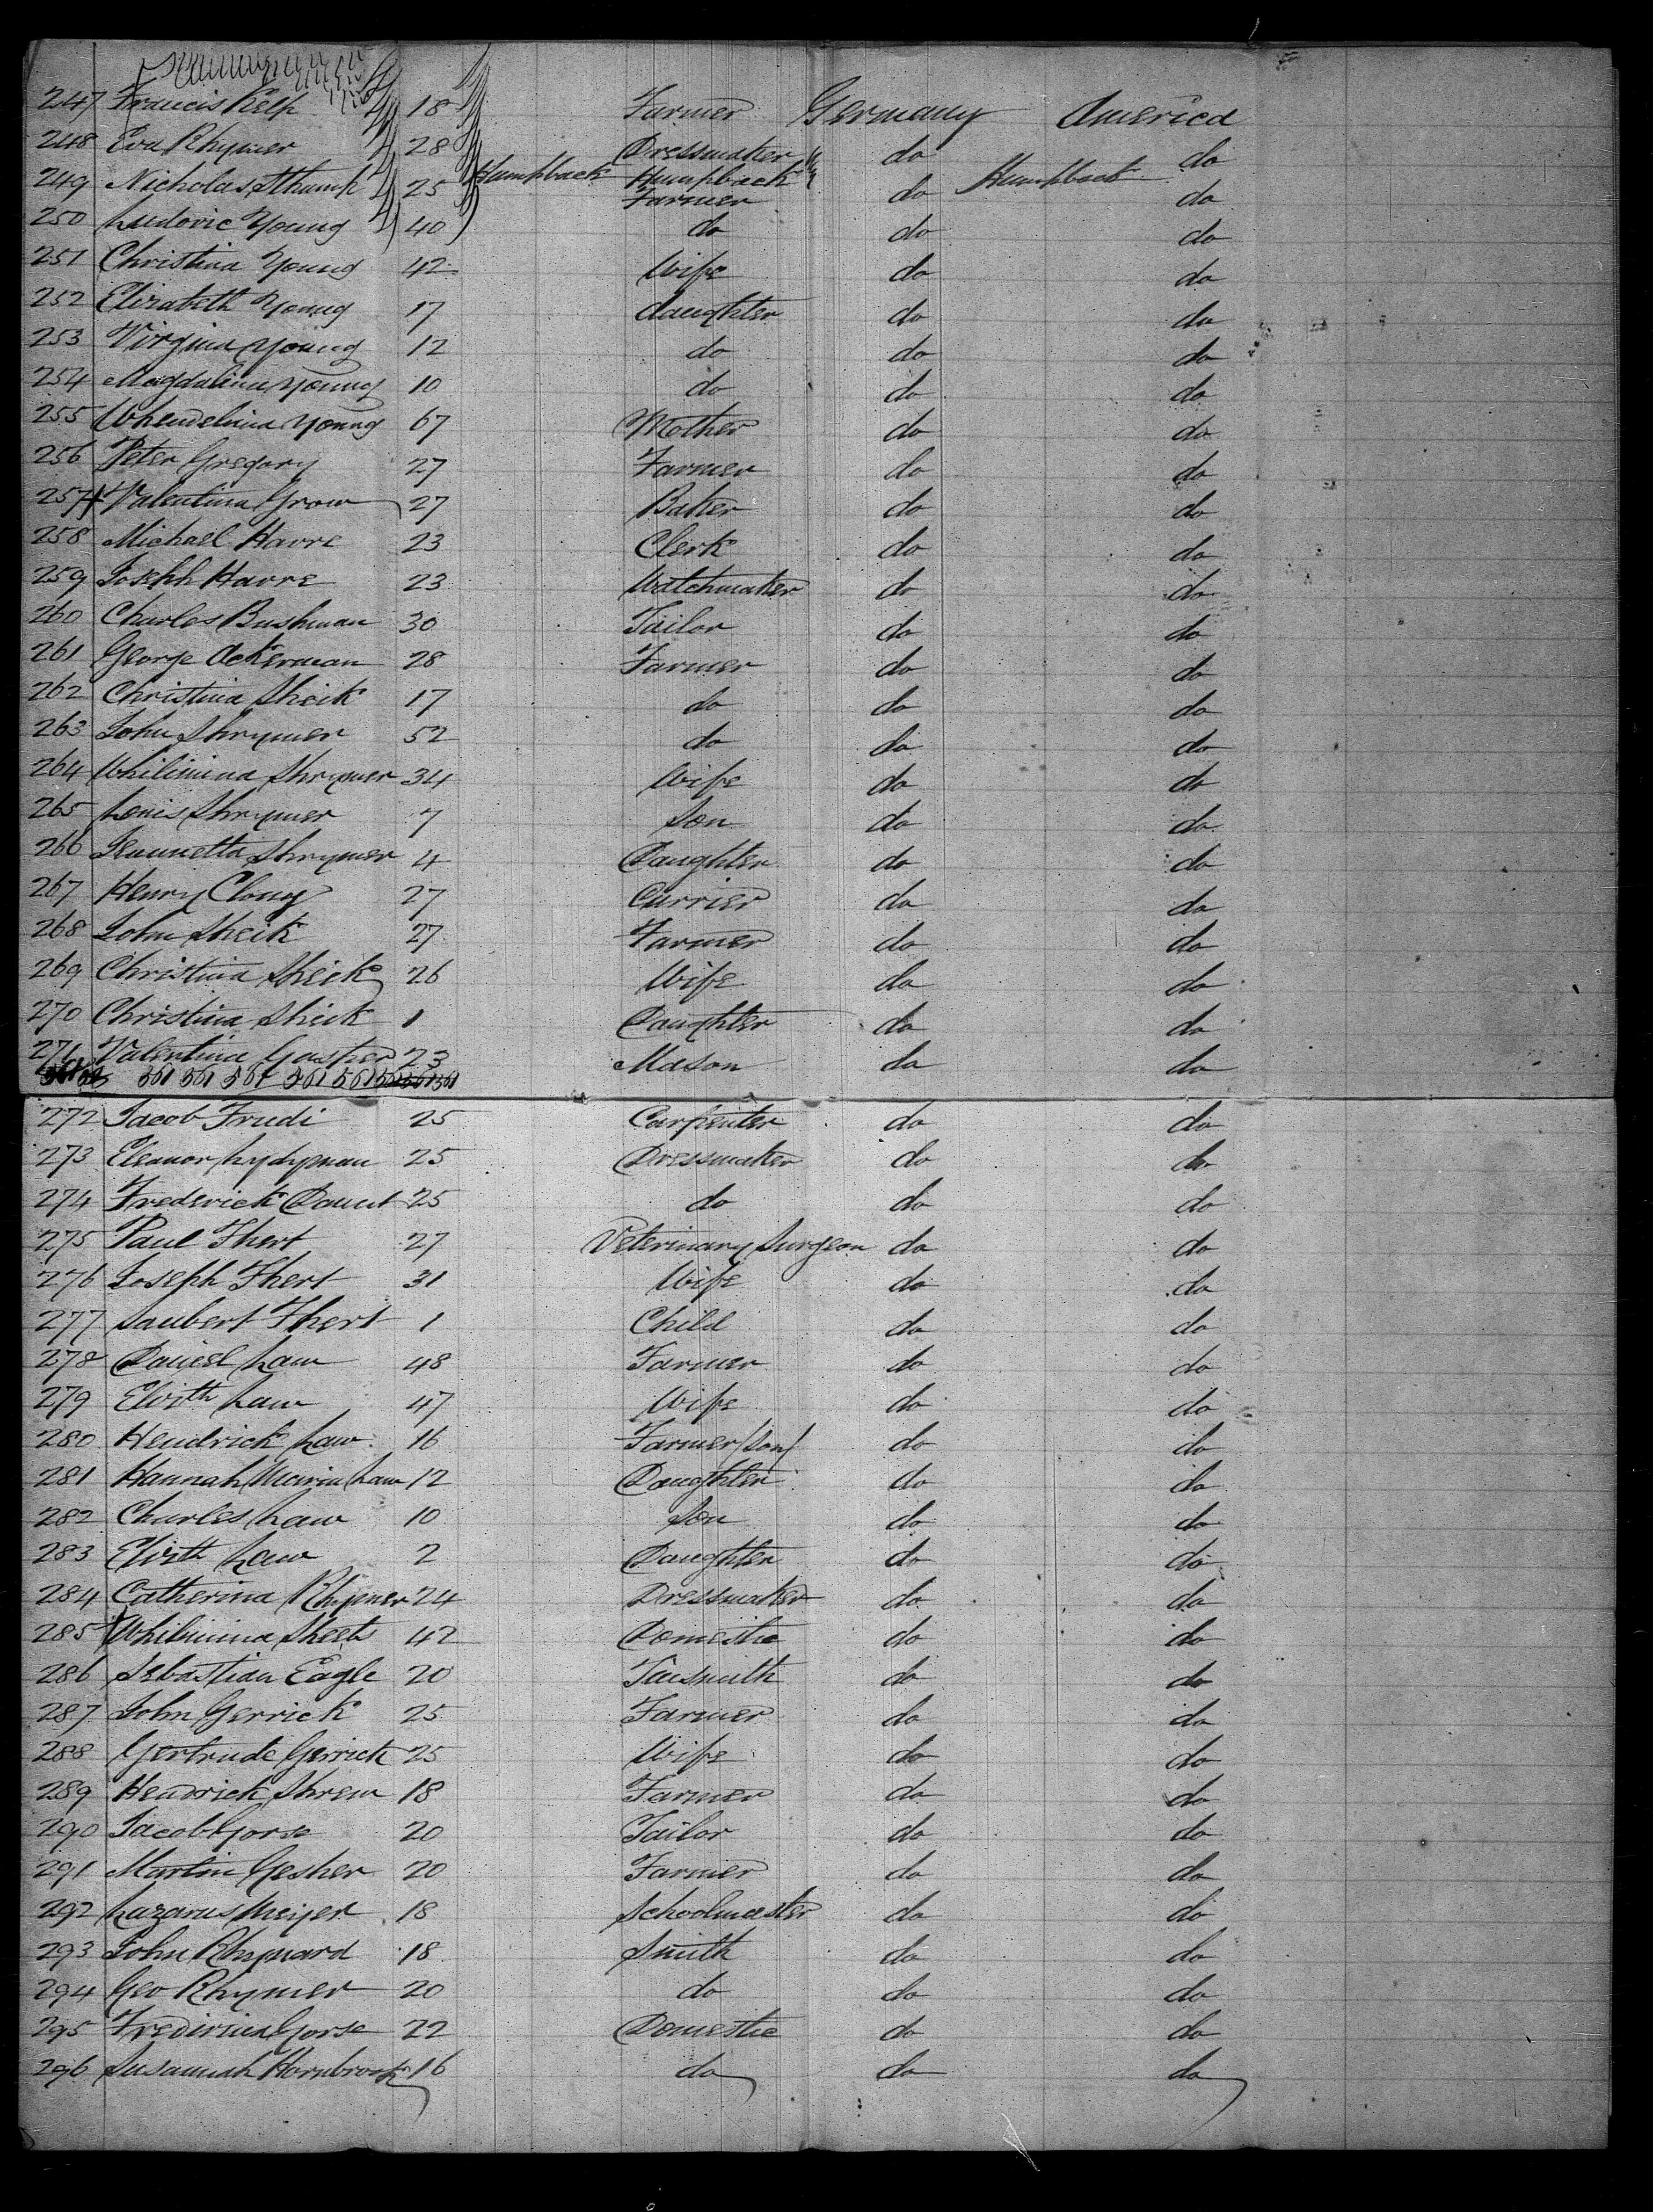 247 Francis Kelp 18 Farmer Germany America
248 Eva Rhymer 28 Dressmaker do do
249 Nicholas Sthumk 25 Humpback Humpback Farmer do Humpback do
250 Ludovic Young 40 do do do
251 Christina Young 42 Wife do do
252 Elizabeth Young 17 daughter do do
253 Virginia Young 12 do do do
254 Magdalina Young 10 do do do
255 Whendelina Young 67 Mother do do
256 Peter Gregory 27 Farmer do do
257 Valentina Grow 27 Baker do do
258 Michael Havre 23 Clerk do do
259 Joseph Havre 23 Watchmaker do do
260 Charles Bushman 30 Tailor do do
261 George Ackerman 28 Farmer do do
262 Christina Sheik 17 do do do
263 John Shrymer 52 do do do
264 Whilimina Shrymer 34 Wife do do
265 Louis Shrymer 7 Son do do
266 Jeunnetta Shrymer 4 Daughter do do
267 Henry Clouy 27 Currier do do
268 John Sheik 27 Farmer do do
269 Christina Sheik 26 Wife do do
270 Christina Sheik 1 Daughter do do
271 Valentina Gasher 23 Mason do do
361 361 361 361 361
272 Jacob Frudi 25 Carpenter do do
273 Eleanor Lydyman 25 Dressmaker do do
274 Frederick 25 do do do
275 Paul Thert 27 Veterinary Surgeon do do
276 Joseph Thert 31 Wife do do
277 Saubert Thert 1 Child do do
278 Daniel Law 48 Farmer do do
279 Elvith Law 47 Wife do do
280 Hendrick Law 16 Farmer (son) do do
281 Hannah Maria Law 12 Daughter do do
282 Charles Law 10 Son do do
283 Elvith Law 2 Daughter do do
284 Catherina Rhymer 24 Dressmaker do do
285 Whilimina Sheets 42 Domestic do do
286 Sebastian Eagle 20 Tinsmith do do
287 John Gerrick 25 Farmer do do
288 Gertrude Gerrick 25 Wife do do
289 Hendrick Shrew 18 Farmer do do
290 Jacob Gorse 20 Tailor do do
291 Martin Gesher 20 Farmer do do
292 Lazarus Meijer 18 Schoolmaster do do
293 John Rhynard 18 Smith do do
294 Geo Rhymer 20 do do do
295 Fredirica Gorse 22 Domestic do do
296 Susannah Hornbrook 16 do do do